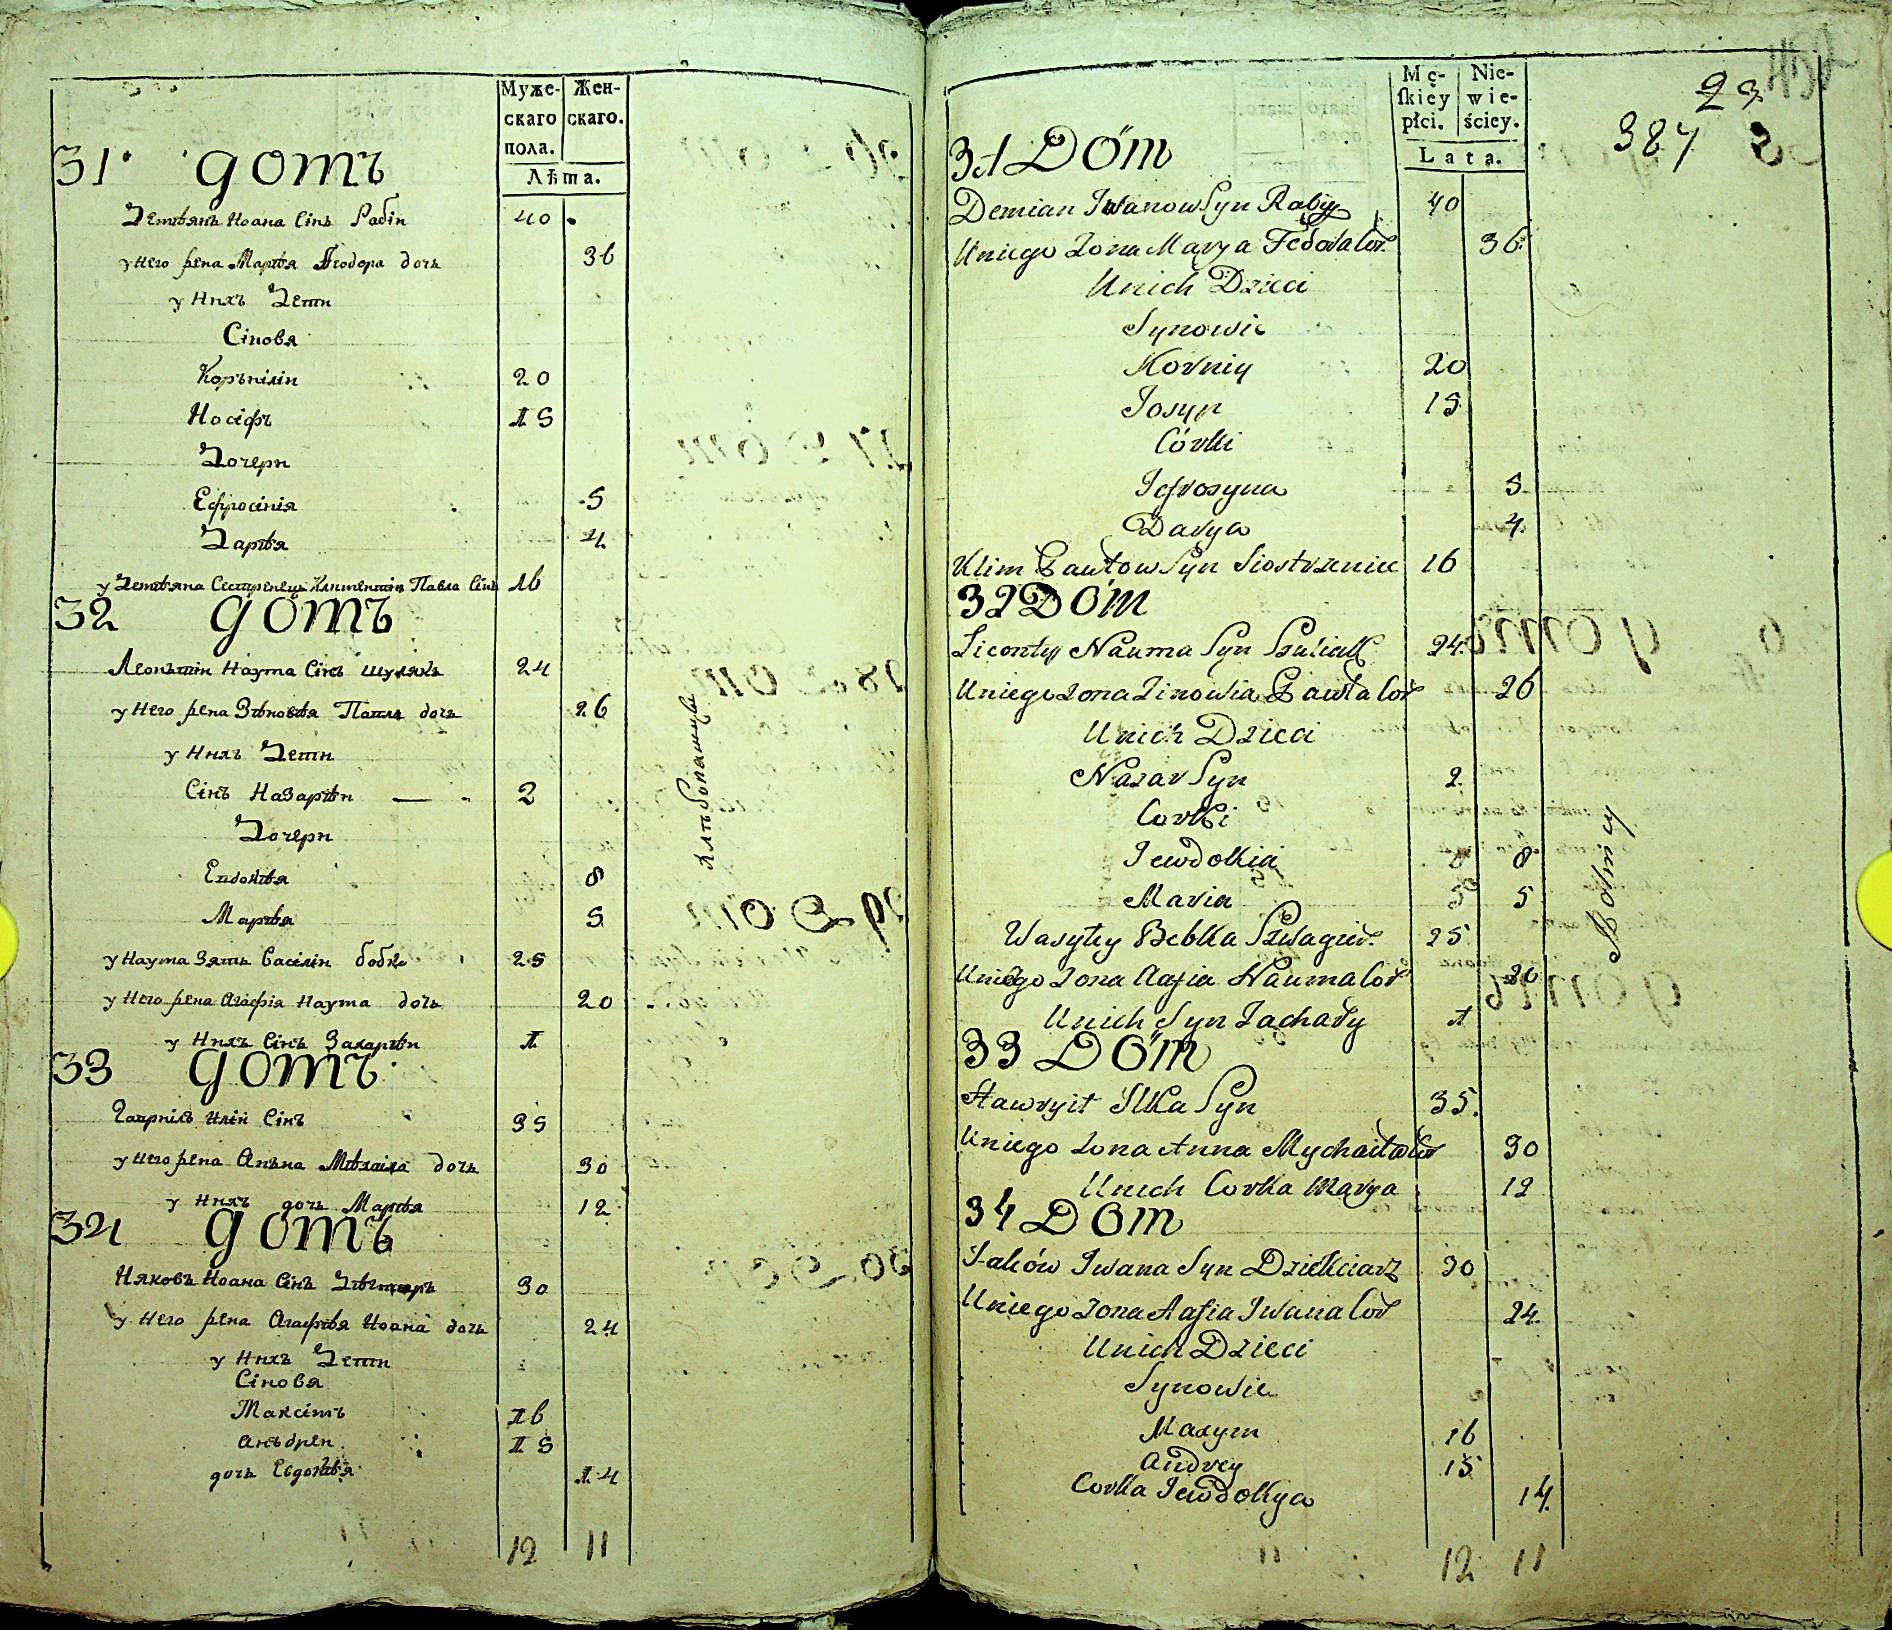 Муже-
скаго
пола.
Жен-
скаго.
Лѣта.
31 домъ
Демѣянъ Иоана Сінъ Рабіи 40
у Него жена Марѣя Ѳеодора дочь 36
у Нихъ Дети
Сіновя
Коръніліи 20
Иосіфъ 15
Дочери
Ефросінія 5
Дарѣя 4
у Демѣяна Сестренецъ Климентіи Павла Сінъ 16
32 домъ
Леонътіи Наума Сінъ шулякъ 24
у Него жена Зѣновѣя Павла дочь 26
у Нихъ Дети
Сінъ Назарѣи 2
Дочери
Евдокѣя 8
Марѣя 5
у Наума Зять Васіліи бобко 25
у Него жена Агафія Наума дочь 20
у Нихъ Сінъ Захарѣи 1
33 домъ
Гавріїлъ Иліи Сінъ 35
у Него жена Анъна Мѣхаіла дочь 30
у Нихъ дочь Марѣя 12
34 домъ
Ияковъ Иоана Сінъ 30
у Него жена Агафѣя Иоана дочь 24
у Нихъ Дети
Сіновя
Максімъ 16
Анъдреи 15
дочь Евдокѣя 14
12 11
Хлѣбопашцы
Mę-
skiey
płci.
Nie-
wie-
ściey.
Lata.
23
387
31 Dóm
Demian Iwanow Syn Rabij 40
Uniego Zona Marya Fedora Cor 36
Unich Dzieci
Synowie
Korniy 20
Josyp 15
Córki
Jefrosyna 5
Darya 4
Klim Pawłow Syn Siostrzeniec 16
32 Dóm
Liconty Nauma Syn Szuliak 24
Uniego Zona Zinowia Pawła Cor 26
Unich Dzieci
Nazar Syn 2
Corki
Jewdokia 8
Maria 5
Wasyley Bebka Szwagier 25
Uniego Zona Aafia Nauma Cor 20
Unich Syn Zachary 1
33 Dóm
Hawryit Ilka Syn 35
Uniego Zona Anna Mychaiła Cor 30
Unich Corka Marya 12
34 Dóm
Jaków Iwana Syn Dziekciarz 30
Uniego Zona Aafia Iwana Cor 24
Unich Dzieci
Synowie
Maxym 16
Andrey 15
Corka Jewdokya 14
12 11
Rolnicy